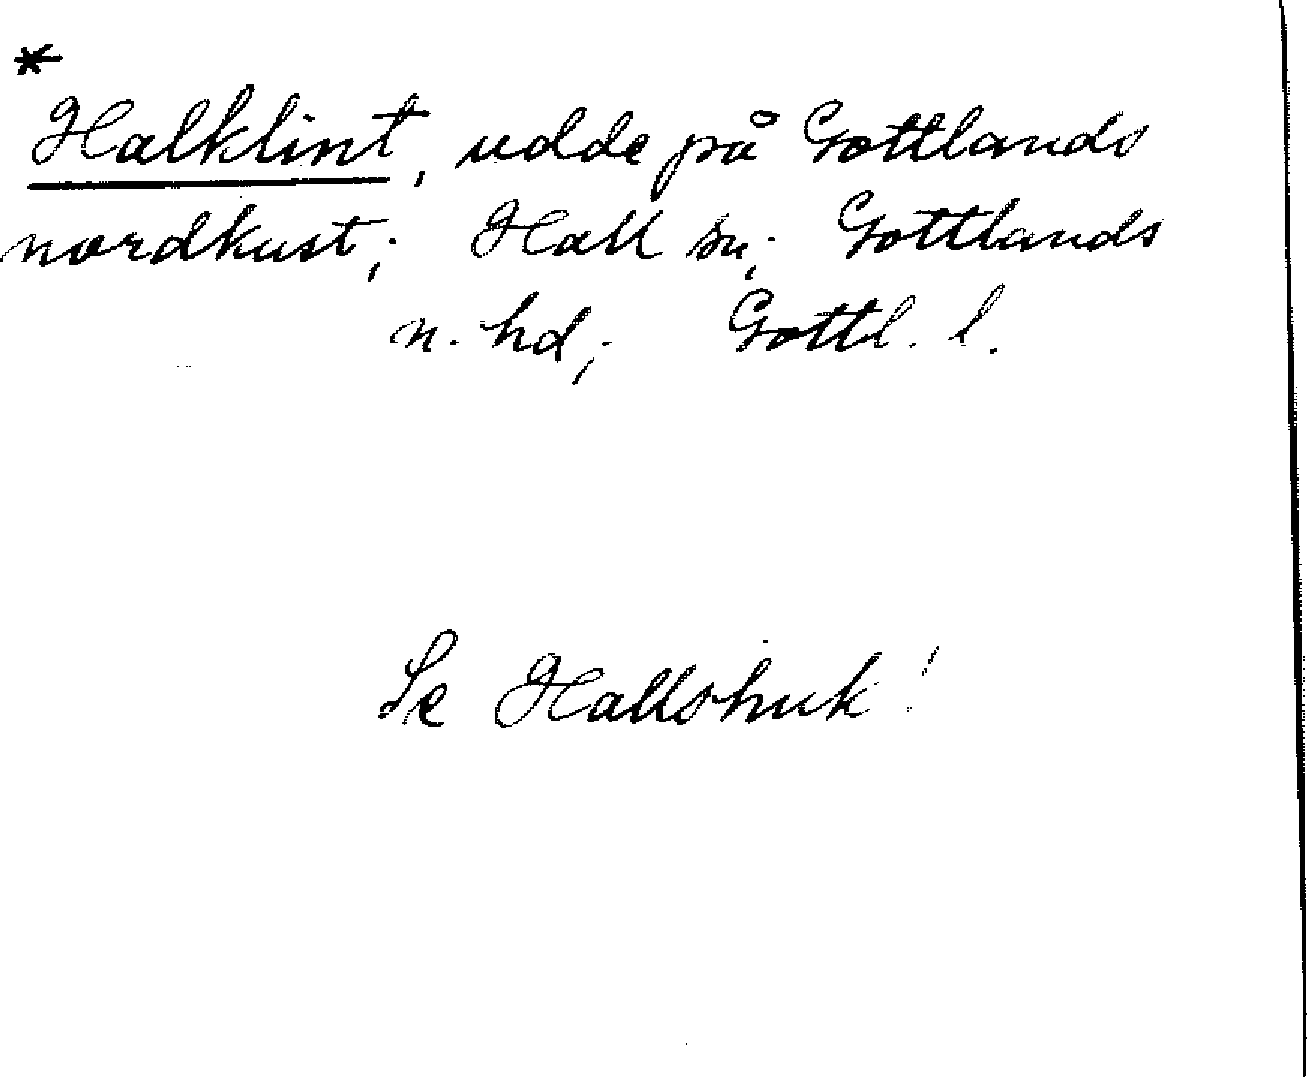 *
Halklint, udde på Gottlands
nordkust; Hall sn; Gottlands
n. hd; Gottl. l.
Se Hallshuk!